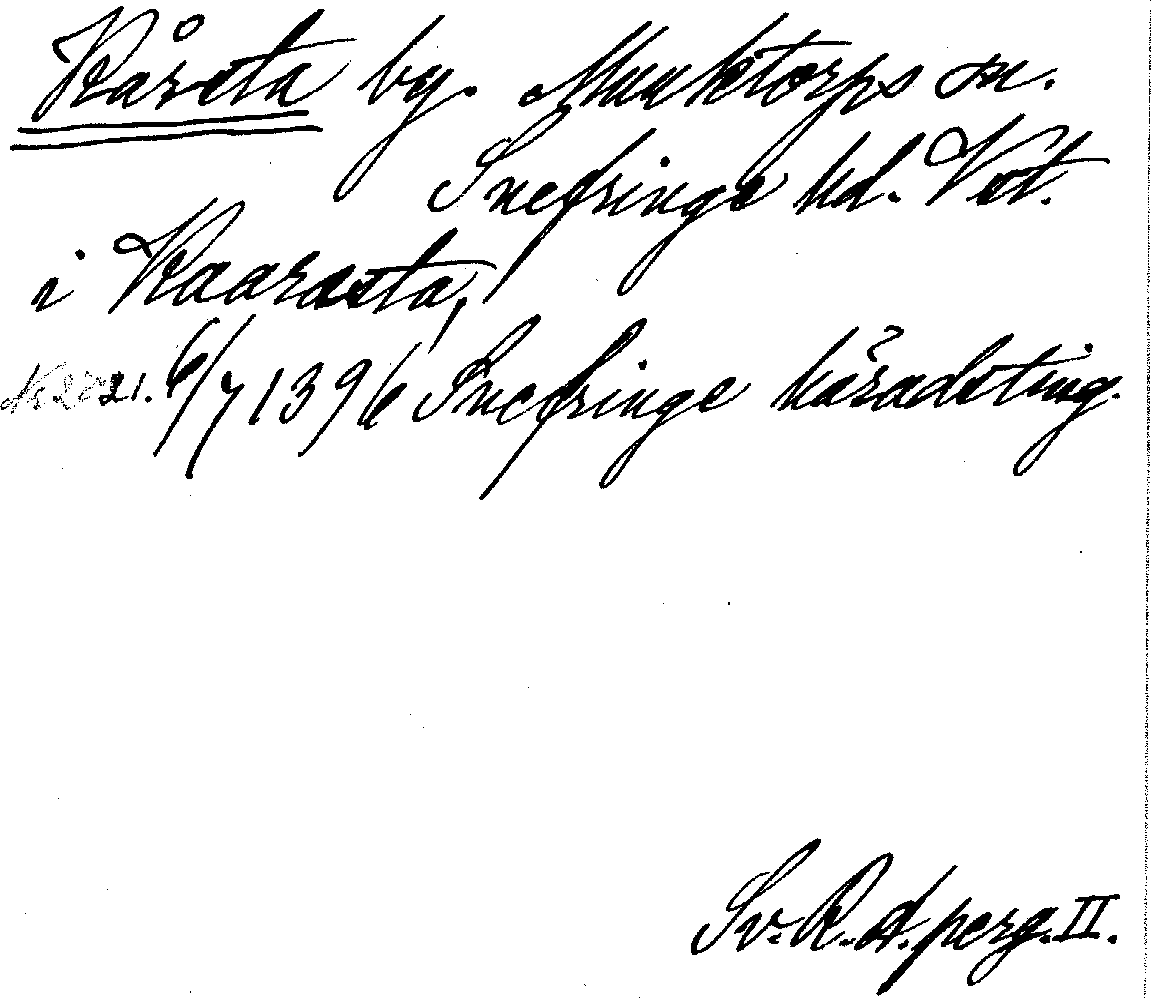 Kårsta by. Munktorps sn.
Snefringe hd. Vstl.
i Kaarasta,
N. 2821. 6/7 1396 Snefringe häradsting.
Sv. R. A. perg. II.